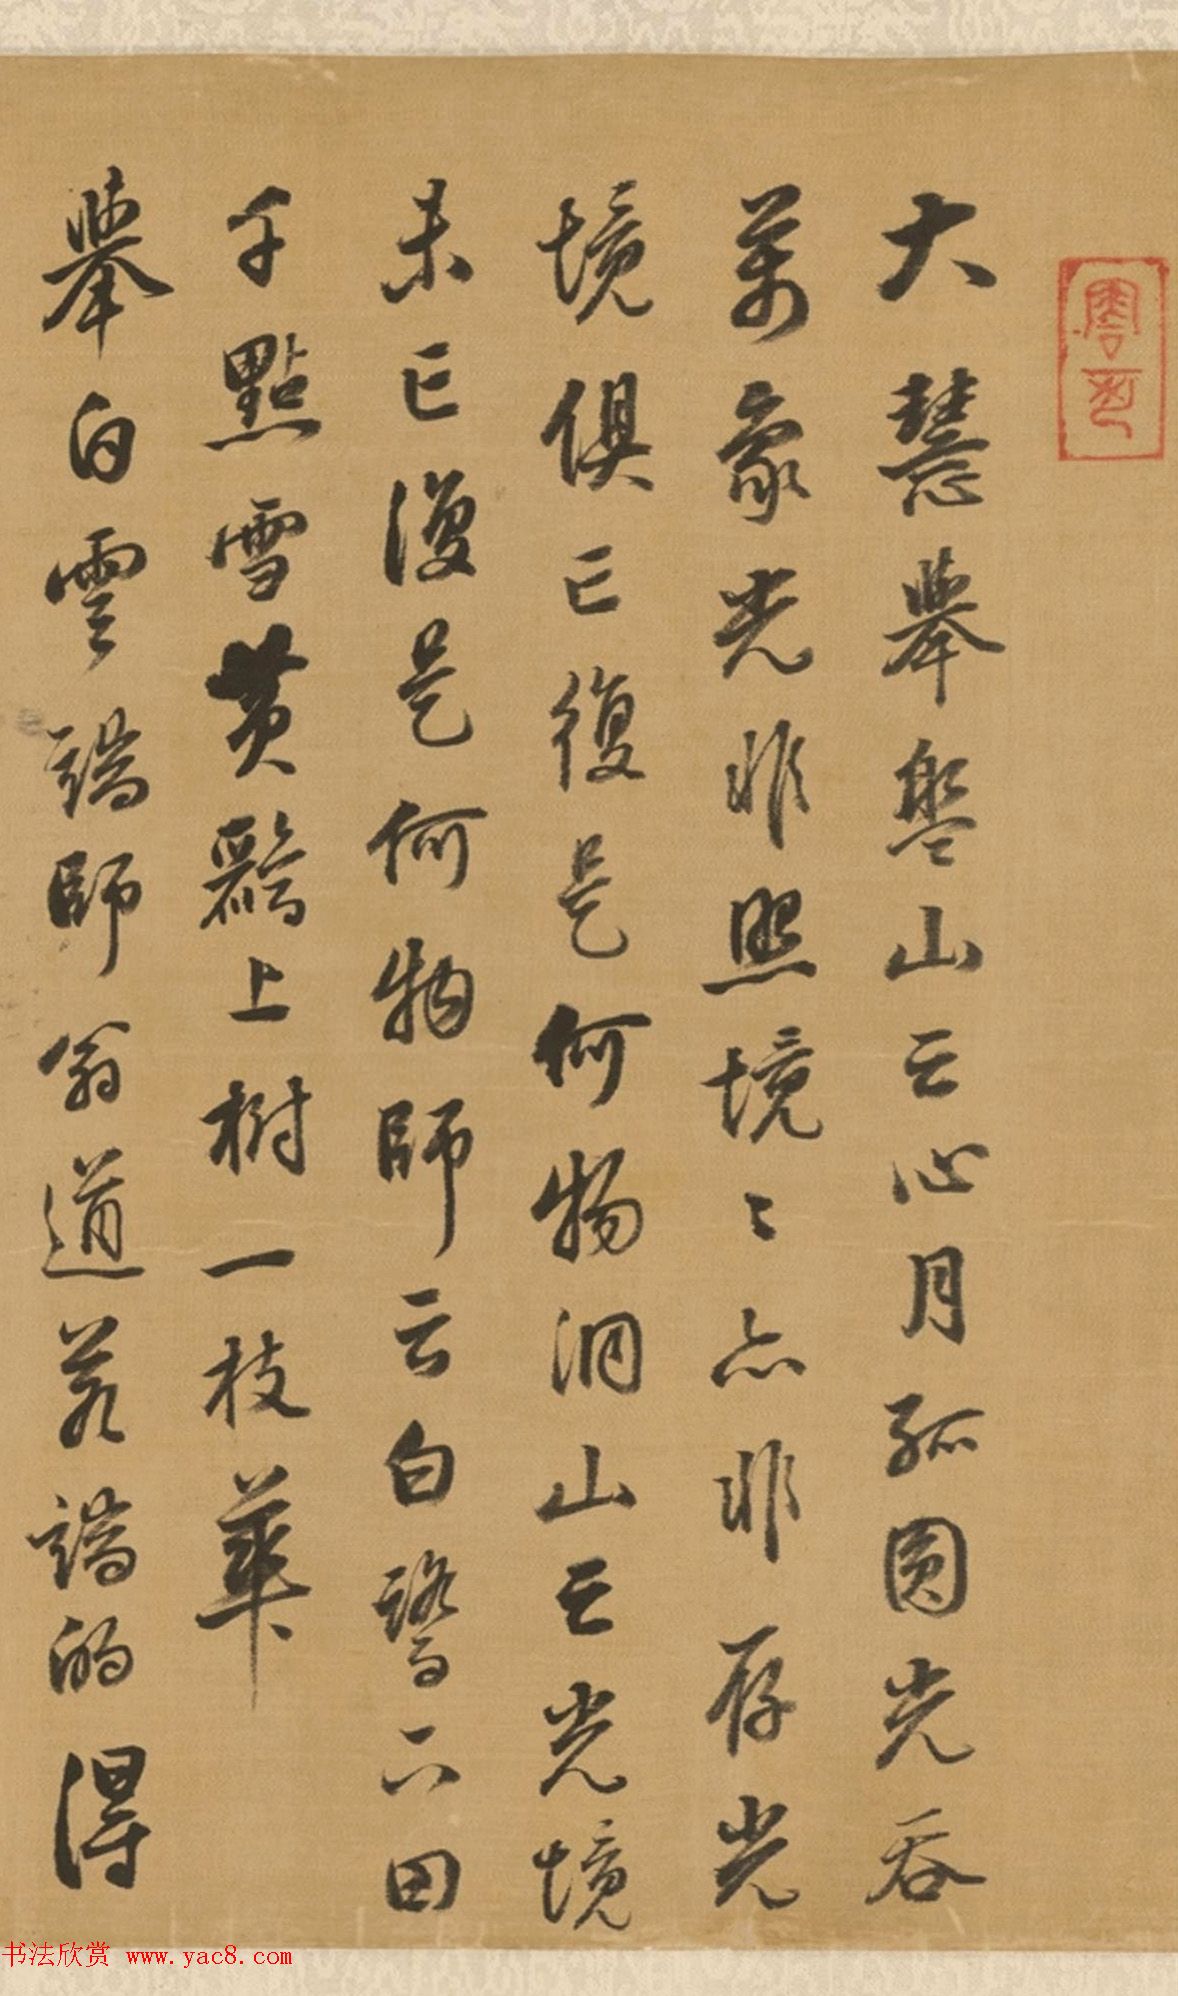 大慧舉盤山云心月孤圓光吞
萬象光非照境々亦非存光
境俱亡復是何物洞山云光境
未亡復是何物師云白鷺下田
千點雪黃鸝上樹一枝華
舉白雲端師翁道若端的得
书法欣赏 www.yac8.com